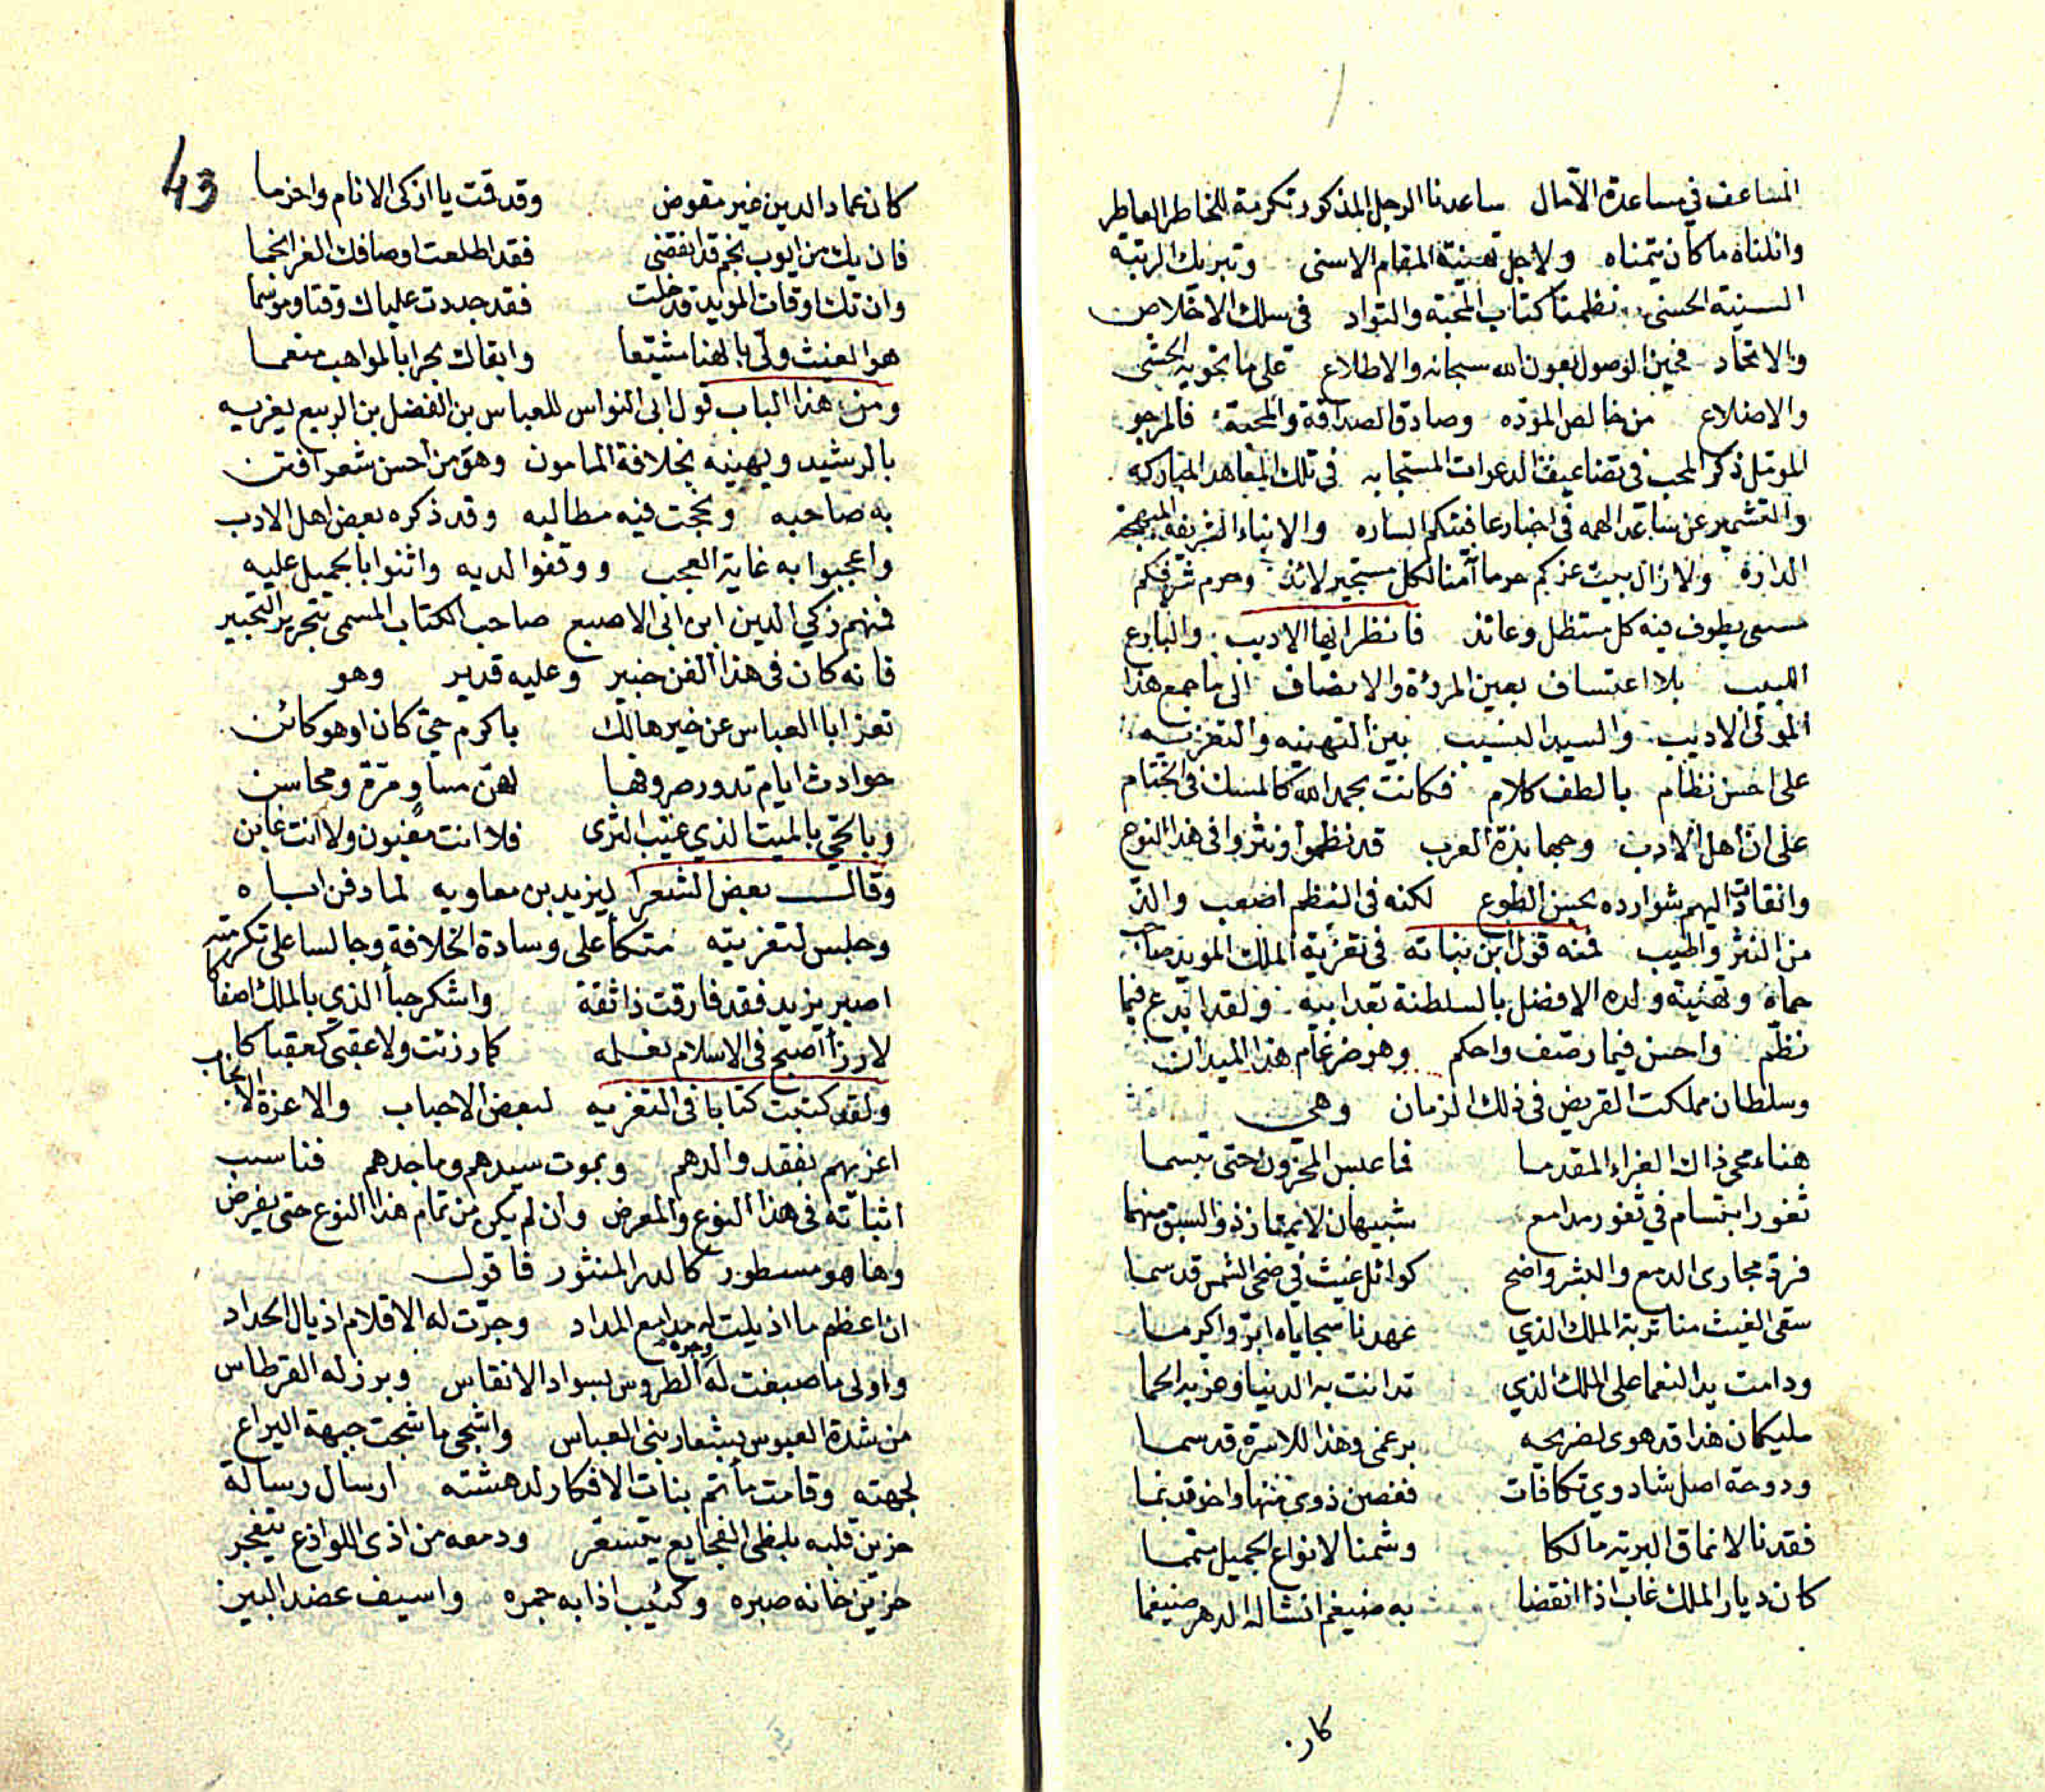 المساعف في مساعدة الآمال ساعدنا الرجل المذكور تكرمة للخاطر العاطر
وانلناه ما كان يتمناه ولاجل تهنية المقام الاسنى وتبريك الرتبة
السنية الحسنى نظمنا كتاب المحبة والتواد في سلك الاخلاص
والاتحاد فحين الوصول بعون الله سبحانه والاطلاع على ما تحويه الحشى
والاضلاع من خالص الموده وصادق الصداقة والمحبة فالمرجو
الموئل ذكر المحب في تضاعيف الدعوات المستجابه في تلك المعاهد المباركه
والتشمير عن ساعد الهمه في اخبار عافيتكم الساره والانباء الشريفه المبهجة
الدارة ولا زال بيت عزكم حرما آمنا لكل مستجير لائذ وحرم شرفكم
مسعى يطوف فيه كل مستظل وعائذ فانظر ايها الاديب والبارع
اللبيب بلا اعتساف بعين المروءة والانصاف الى ما جمع هذا
المولى الاديب والسيد النسيب بين التهنيه والتعزيه
على احسن نظام بالطف كلام فكانت بحمد الله كالمسك في الختام
على ان اهل الادب وجهابذة العرب قد نظموا ونثروا في هذا النوع
وانقادت اليهم شوارده بحسن الطوع لكنه في النظم اصعب والذ
من النثر واطيب فمنه قول ابن نباته في تعزية الملك المويد صاحب
حماه وتهنية ولده الافضل بالسلطنة بعد ابيه ولقد ابدع فيما
نظم واحسن فيما رصف واحكم وهو ضرغام هذا الميدان
وسلطان مملكت القريض في ذلك الزمان وهي
هناء محى ذاك العزاء المقدما فما عبس المحزون حتى تبسما
ثغور ابتسام في ثغور مدامع شبيهان لا يمتاز ذو السبق منهما
نرد مجاري الدمع والبشر واضح كوابل غيث في ضحى الشمس قد سما
سقى الغيث منا تربة الملك الذي عهدنا سجاياه ابر واكرما
ودامت يد النعما على الملك الذي تدانت به الدنيا وعز به الحما
مليكان هذا قد هوى لضريحه برغمى وهذا للاسرة قد سما
ودوحة اصل شاذوي تكافات فغصن ذوى منها واخر قد نما
فقدنا لاعناق البريه مالكا وشمنا لانواع الجميل متمما
كان ديار الملك غاب اذا انقضا به ضيغم انشا له الدهر ضيغما
كان
43
كان عماد الدين غير مقوض وقد قمت يا ازكى الانام واحزما
فان يك من ايوب نجم قد انقضى فقد اطلعت اوصافك الغر انجما
وان تك اوقات المويد قد خلت فقد جددت علياك وقتا وموسما
هو الغيث ولى بالهنا مشيعا وابقاك بحرا بالمواهب منعما
ومن هذا الباب قول ابي النواس للعباس بن الفضل بن الربيع يعزيه
بالرشيد ويهنيه بخلافة المامون وهو من احسن شعر افتن
به صاحبه ونجحت فيه مطالبه وقد ذكره بعض اهل الادب
واعجبوا به غاية العجب ووقفوا لديه واثنوا بالجميل عليه
فمنهم زكي الدين ابن ابي الاصبع صاحب الكتاب المسمى بتحرير التحبير
فانه كان في هذا الفن خبير وعليه قدير وهو
تعز ابا العباس عن خير هالك باكرم حي كان او هو كائن
حوادث ايام تدور صروفها لهن مساو مرة ومحاسن
وبالحي بالميت الذي غيب الثرى فلا انت مغبون ولا انت غابن
وقال بعض الشعرا ليزيد بن معاويه لما دفن اباه
وجلس لتعزيته متكأ على وسادة الخلافة وجالسا على تكرمته
اصبر يزيد فقد فارقت ذا ثقة واشكر حبأ الذي بالملك اصفاكا
لا رزأ اصبح في الاسلام نعلمه كما رزئت ولا عقبى كعقباكا
ولقد كتبت كتابا في التعزيه لبعض الاحباب والاعزة الانجاب
اعزيهم بفقد والدهم وبموت سيدهم وماجدهم فناسب
اثباته في هذا النوع والمعرض وان لم يكن من تمام هذا النوع حتى يفرض
وها هو مسطور كالدر المنثور فاقول
ان اعظم ما اذيلت له مدامع المداد وجرت له الاقلام اذيال الحداد
واولى ما صبغت له وجوه الطروس بسواد الانقاس وبرز له القرطاس
من شدة العبوس بشعار بني العباس واشجى ما شجت جبهة اليراع
لجهته وقامت مأتم بنات الافكار لدهشته ارسال رسالة
حزين قلبه بلظى الفجايع يتسعر ودمعه من اذى اللواذع يتفجر
حزين خانه صبره وكئيب اذابه جمره واسيف عضد البين